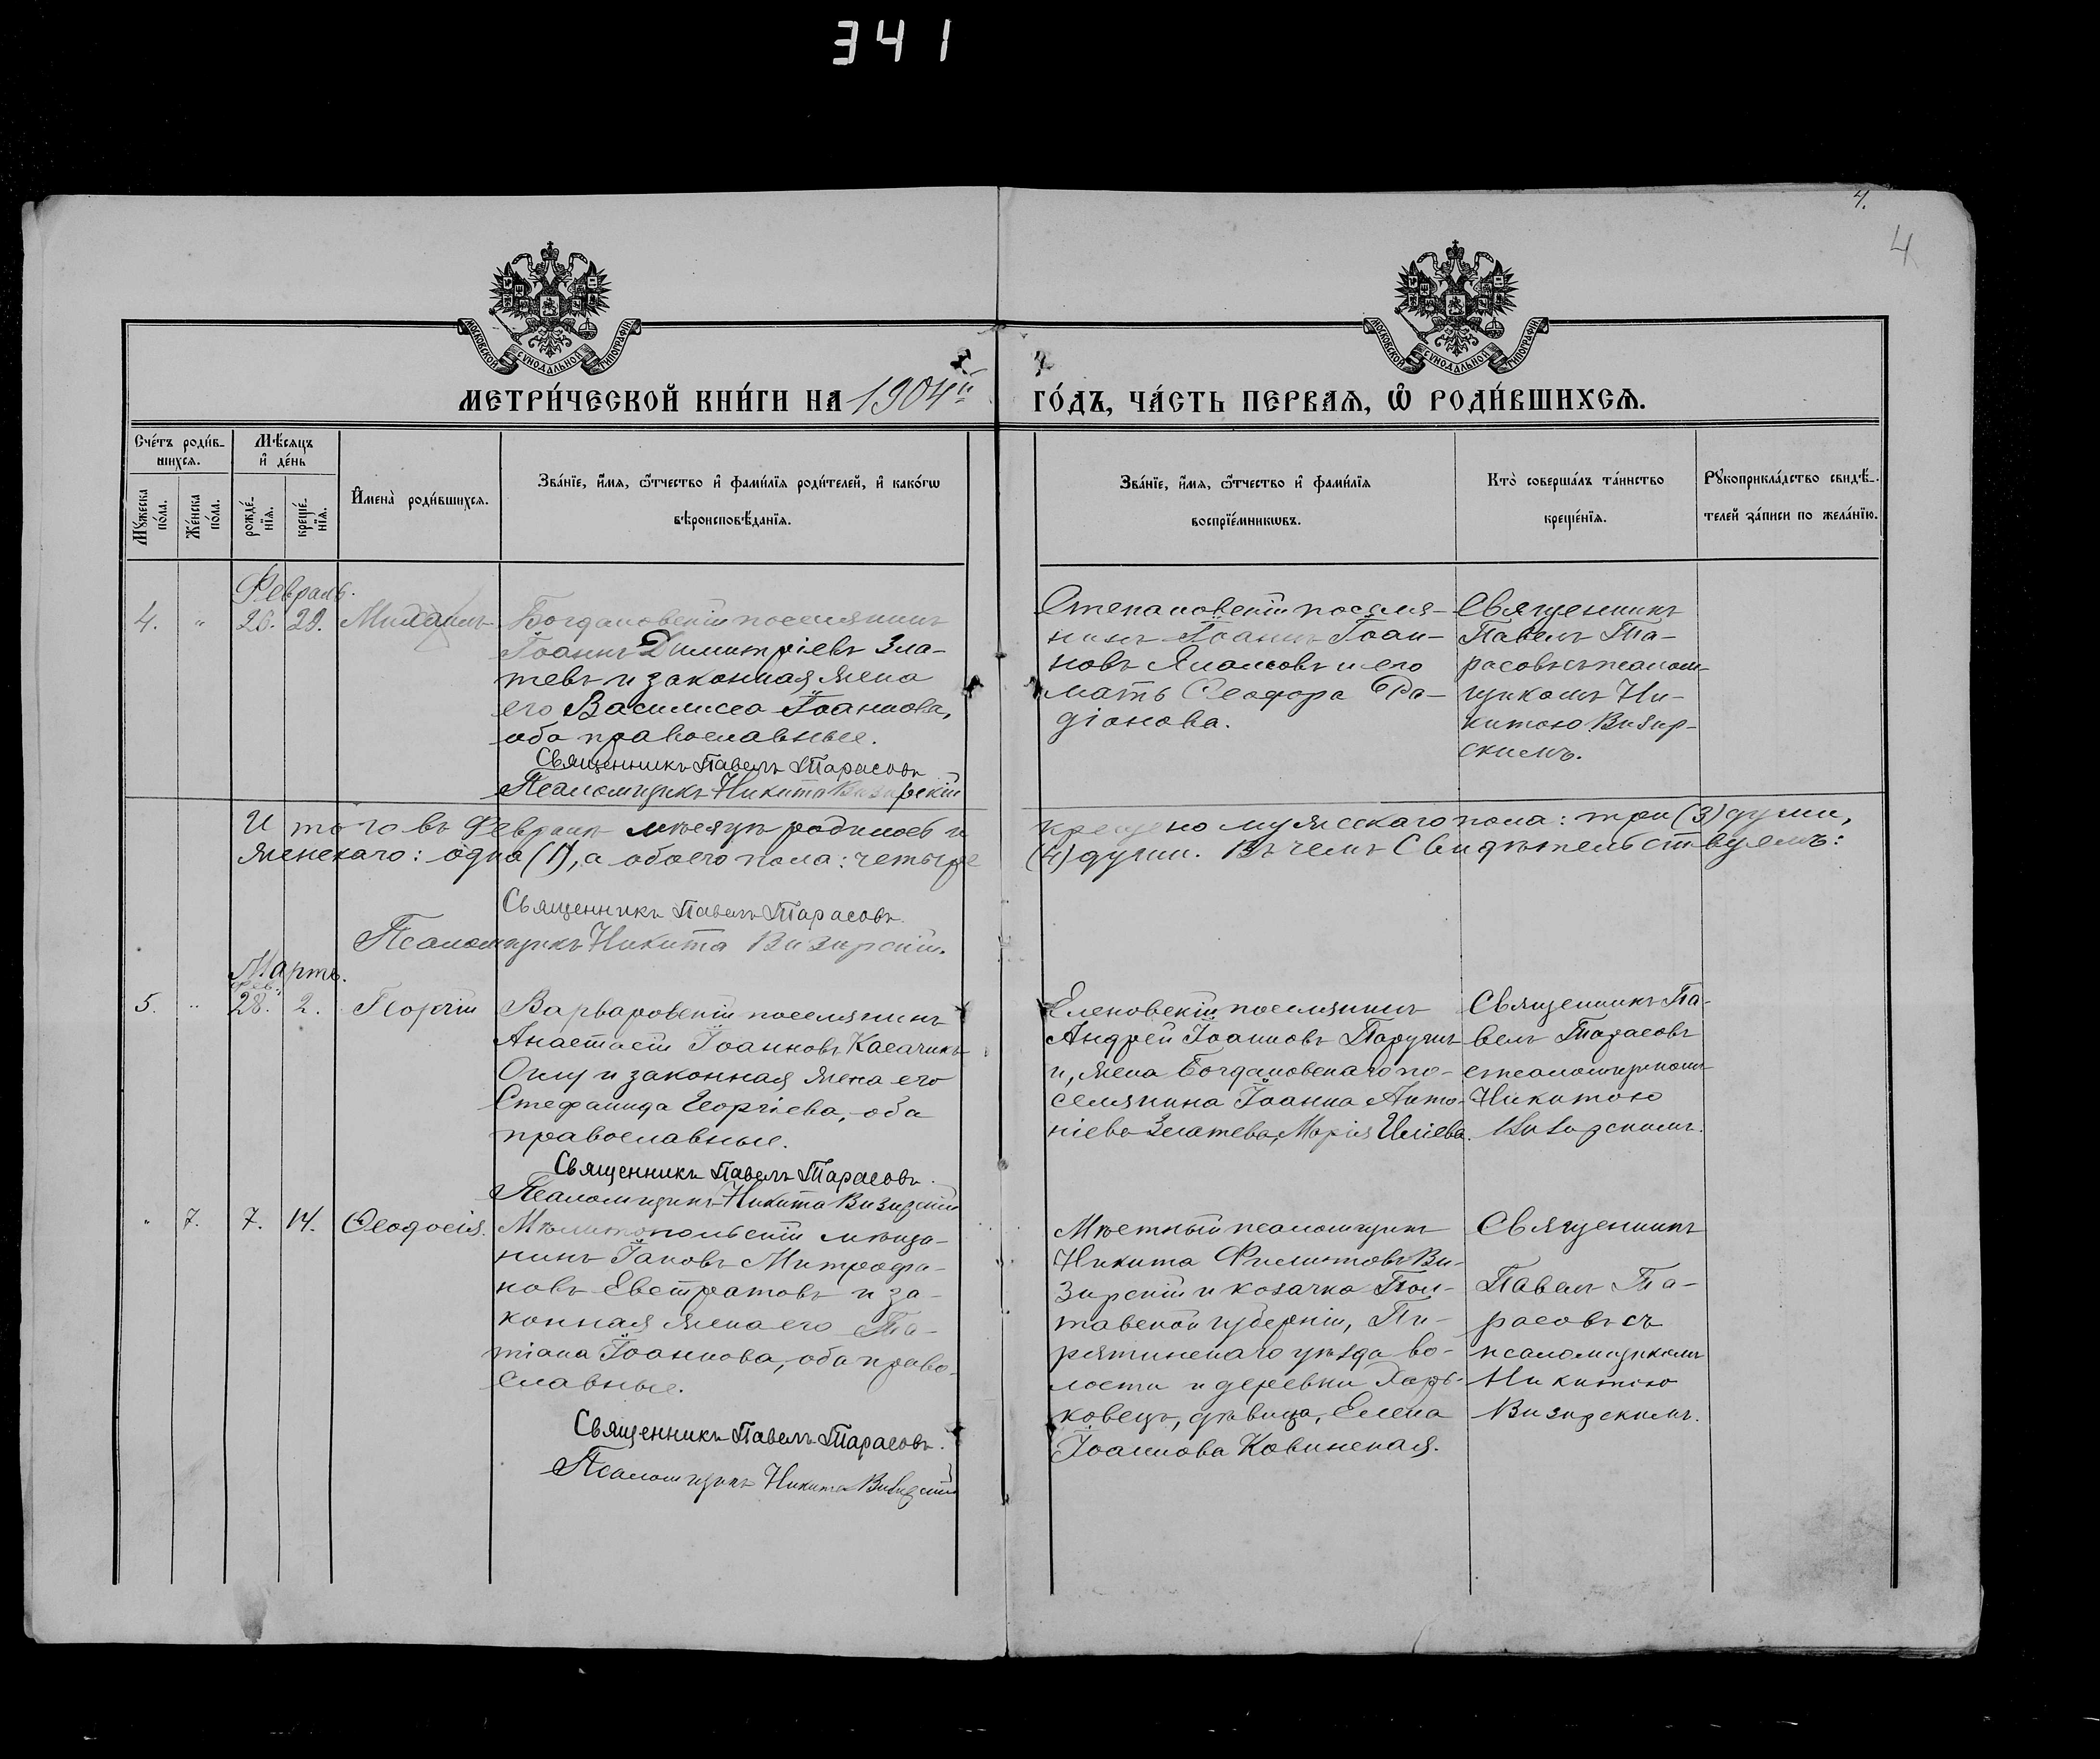 341
4.
4
МОСКОВСКОЙ СѴНОДАЛЬНОЙ ТИПОГРАФІИ
МОСКОВСКОЙ СѴНОДАЛЬНОЙ ТИПОГРАФІИ
МЕТРИ́ЧЕСКОЙ КНИ́ГИ НА 1904й ГО́ДЪ, ЧА́СТЬ ПЕРВАѦ, Ѡ҆ РОДИ́ВШИХСѦ.
Сче́тъ роди́в-
шихсѧ.
Мꙋ́жеска по́ла.
Же́нска по́ла.
Мѣ́сяцъ
и҆ де́нь
рожде́-
нїѧ.
креще́-
нїѧ.
И҆мена̀ роди́вшихсѧ.
Зва́нїе, и҆́мѧ, ѻ҆́тчество и҆ фами́лїѧ роди́телей, и҆ како́гѡ
вѣроисповѣ́данїѧ.
Зва́нїе, и҆́мѧ, ѻ҆́тчество и҆ фами́лїѧ
воспрїе́мникѡвъ.
Кто̀ соверша́лъ та́инство
креще́нїѧ.
Рꙋкоприкла́дство свидѣ́-
телей за́писи по жела́нїю.
Февраль.
4. " 26. 29. Михаилъ
Богдановскій поселянинъ
Іоаннъ Димитріевъ Зла-
тевъ и законная жена
его Василисса Іоаннова,
оба православные.
Священникъ Павелъ Тарасовъ
Псаломщикъ Никита Визирскій
Степановскій поселя-
нинъ Іоаннъ Іоан-
новъ и его
мать Ѳеодора Ра-
діонова.
Священникъ
Павелъ Та-
расовъ съ псалом-
щикомъ Ни-
китою Визир-
скимъ.
Итого въ Февралѣ мѣсяцѣ родилось и крещено мужескаго пола: три (3) души,
женскаго: одна (1), а обоего пола: четыре (4) души. Въ чемъ Свидѣтельствуемъ:
Священникъ Павелъ Тарасовъ.
Псаломщикъ Никита Визирскій.
Мартъ.
Фев.
5. " 28. 2. Георгій
Варваровскій поселянинъ
Анастасій Іоанновъ Касачикъ
Оглу и законная жена его
Стефанида Георгіева, оба
православные.
Священникъ Павелъ Тарасовъ.
Псаломщикъ Никита Визирскій
Еленовскій поселянинъ
Андрей Іоанновъ
и, жена Богдановскаго по-
селянина Іоанна Анто-
ніева Златева, Марія Иліева.
Священникъ Па-
велъ Тарасовъ
съ псаломщикомъ
Никитою
Визирскимъ.
" 7. 7. 14. Ѳеодосія.
Мѣлитопольскій мѣща-
нинъ Іаковъ Митрофа-
новъ Евстратовъ и за-
конная жена его Та-
тіана Іоаннова, оба право-
славные.
Священникъ Павелъ Тарасовъ.
Псаломщикъ Никита Визирскій
Мѣстный псаломщикъ
Никита Филиповъ Ви-
зирскій и козачка Пол-
тавской губерніи, Пи-
рятинскаго уѣзда во-
лости и деревни Харь-
ковецъ, дѣвица, Елена
Іоаннова Ковинская.
Священникъ
Павелъ Та-
расовъ съ
псаломщикомъ
Никитою
Визирскимъ.